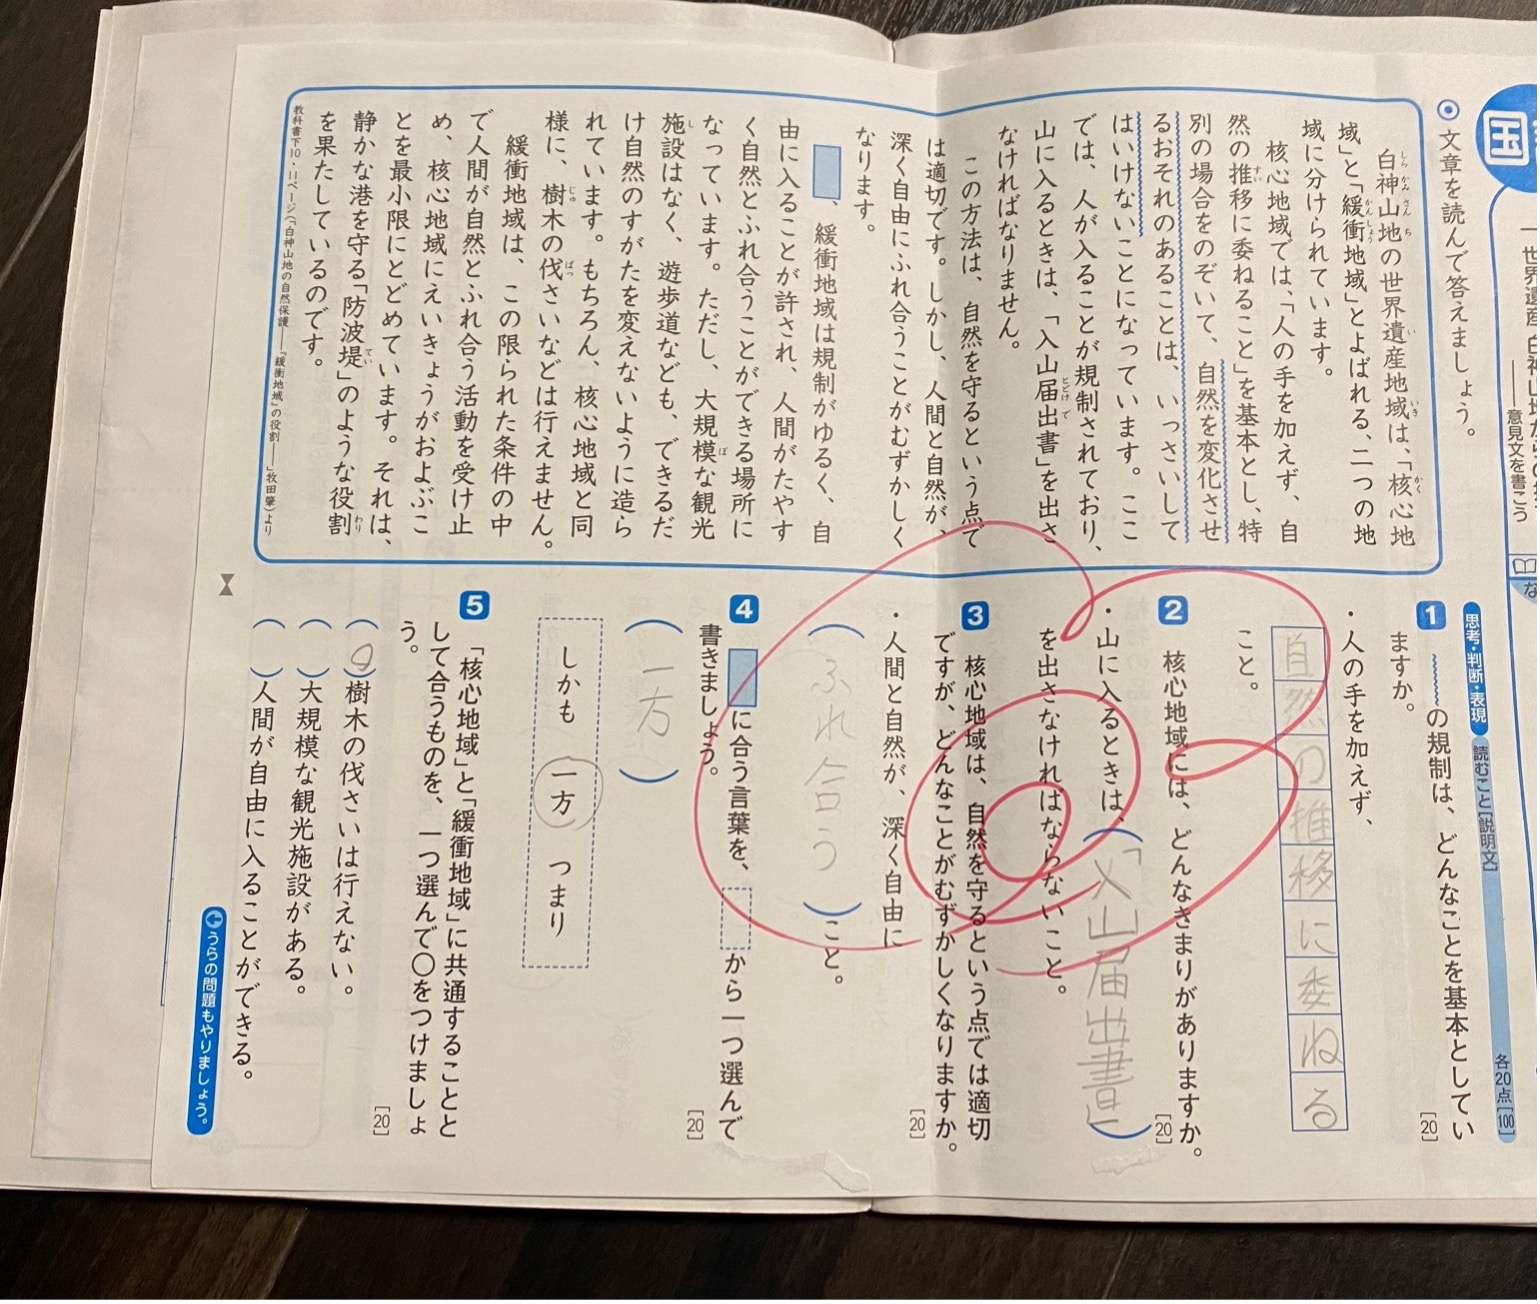 国
世界遺産 白神山地からの
意見文を書こう
文章を読んで答えましょう。
白神山地の世界遺産地域は、「核心地
域」と「緩衝地域」とよばれる、二つの地
域に分けられています。
核心地域では、「人の手を加えず、自
然の推移に委ねること」を基本とし、特
別の場合をのぞいて、自然を変化させ
るおそれのあることは、いっさいして
はいけないことになっています。ここ
では、人が入ることが規制されており、
山に入るときは、「入山届出書」を出さ
なければなりません。
この方法は、自然を守るという点で
は適切です。しかし、人間と自然が、
深く自由にふれ合うことがむずかしく
なります。
、緩衝地域は規制がゆるく、自
由に入ることが許され、人間がたやす
く自然とふれ合うことができる場所に
なっています。ただし、大規模な観光
施設はなく、遊歩道なども、できるだ
け自然のすがたを変えないように造ら
れています。もちろん、核心地域と同
様に、樹木の伐さいなどは行えません。
緩衝地域は、この限られた条件の中
で人間が自然とふれ合う活動を受け止
め、核心地域にえいきょうがおよぶこ
とを最小限にとどめています。それは、
静かな港を守る「防波堤」のような役割
を果たしているのです。
教科書下10・11ページ(「白神山地の自然保護——「緩衝地域」の役割——」牧田肇)より
思考・判断・表現 読むこと[説明文] 各20点[100]
1 の規制は、どんなことを基本としてい
ますか。 [20]
・人の手を加えず、
自然の推移に委ねる
こと。
2 核心地域には、どんなきまりがありますか。 [20]
・山に入るときは、(「入山届出書」)
を出さなければならないこと。
3 核心地域は、自然を守るという点では適切
ですが、どんなことがむずかしくなりますか。 [20]
・人間と自然が、深く自由に
(ふれ合う)こと。
4 に合う言葉を、 から一つ選んで
書きましょう。 [20]
(一方)
しかも 一方 つまり
5 「核心地域」と「緩衝地域」に共通することと
して合うものを、一つ選んで○をつけましょ
う。 [20]
(○)樹木の伐さいは行えない。
( )大規模な観光施設がある。
( )人間が自由に入ることができる。
うらの問題もやりましょう。